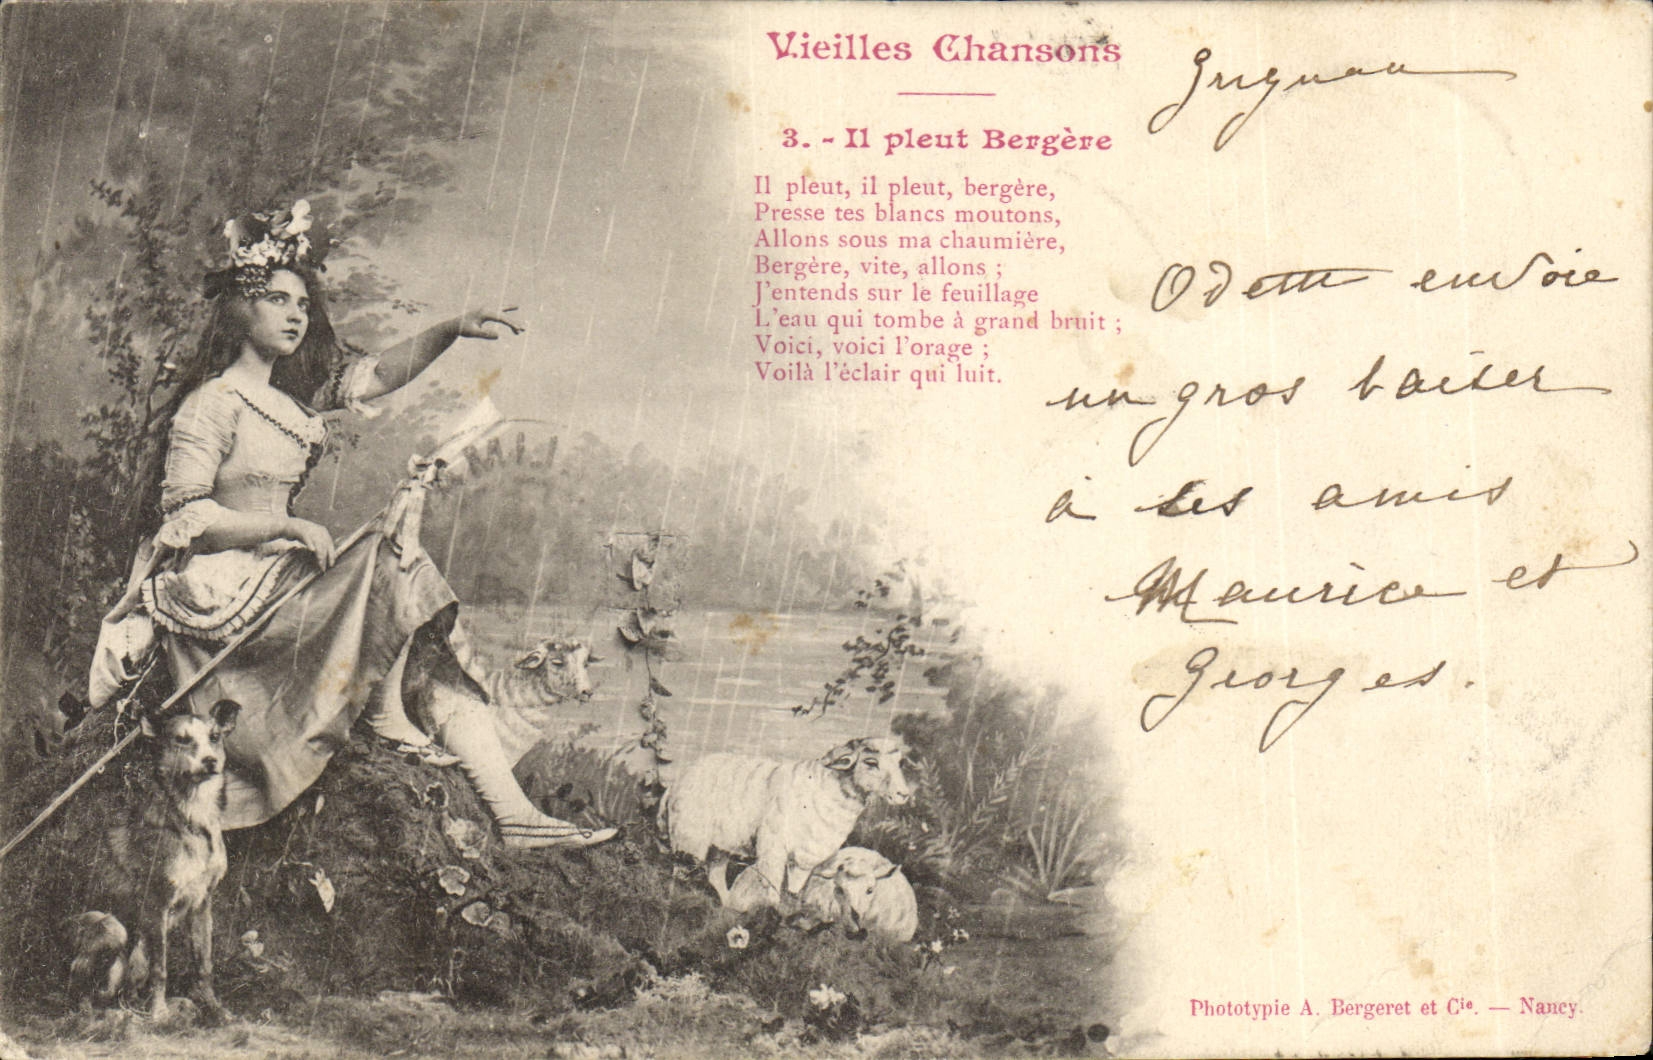 Vieilles Chansons
3. - Il pleut Bergère
Il pleut, il pleut, bergère,
Presse tes blancs moutons,
Allons sous ma chaumière,
Bergère, vite, allons ;
J'entends sur le feuillage
L'eau qui tombe à grand bruit ;
Voici, voici l'orage ;
Voilà l'éclair qui luit.
Grignan
Odette envoie
un gros baiser
à ses amis
Maurice et
Georges.
Phototypie A. Bergeret et Cie. — Nancy.